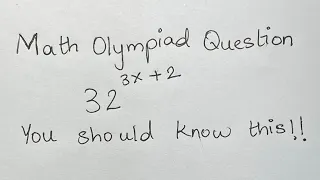 Math Olympiad Question
32^{3x+2}
You should know this!!